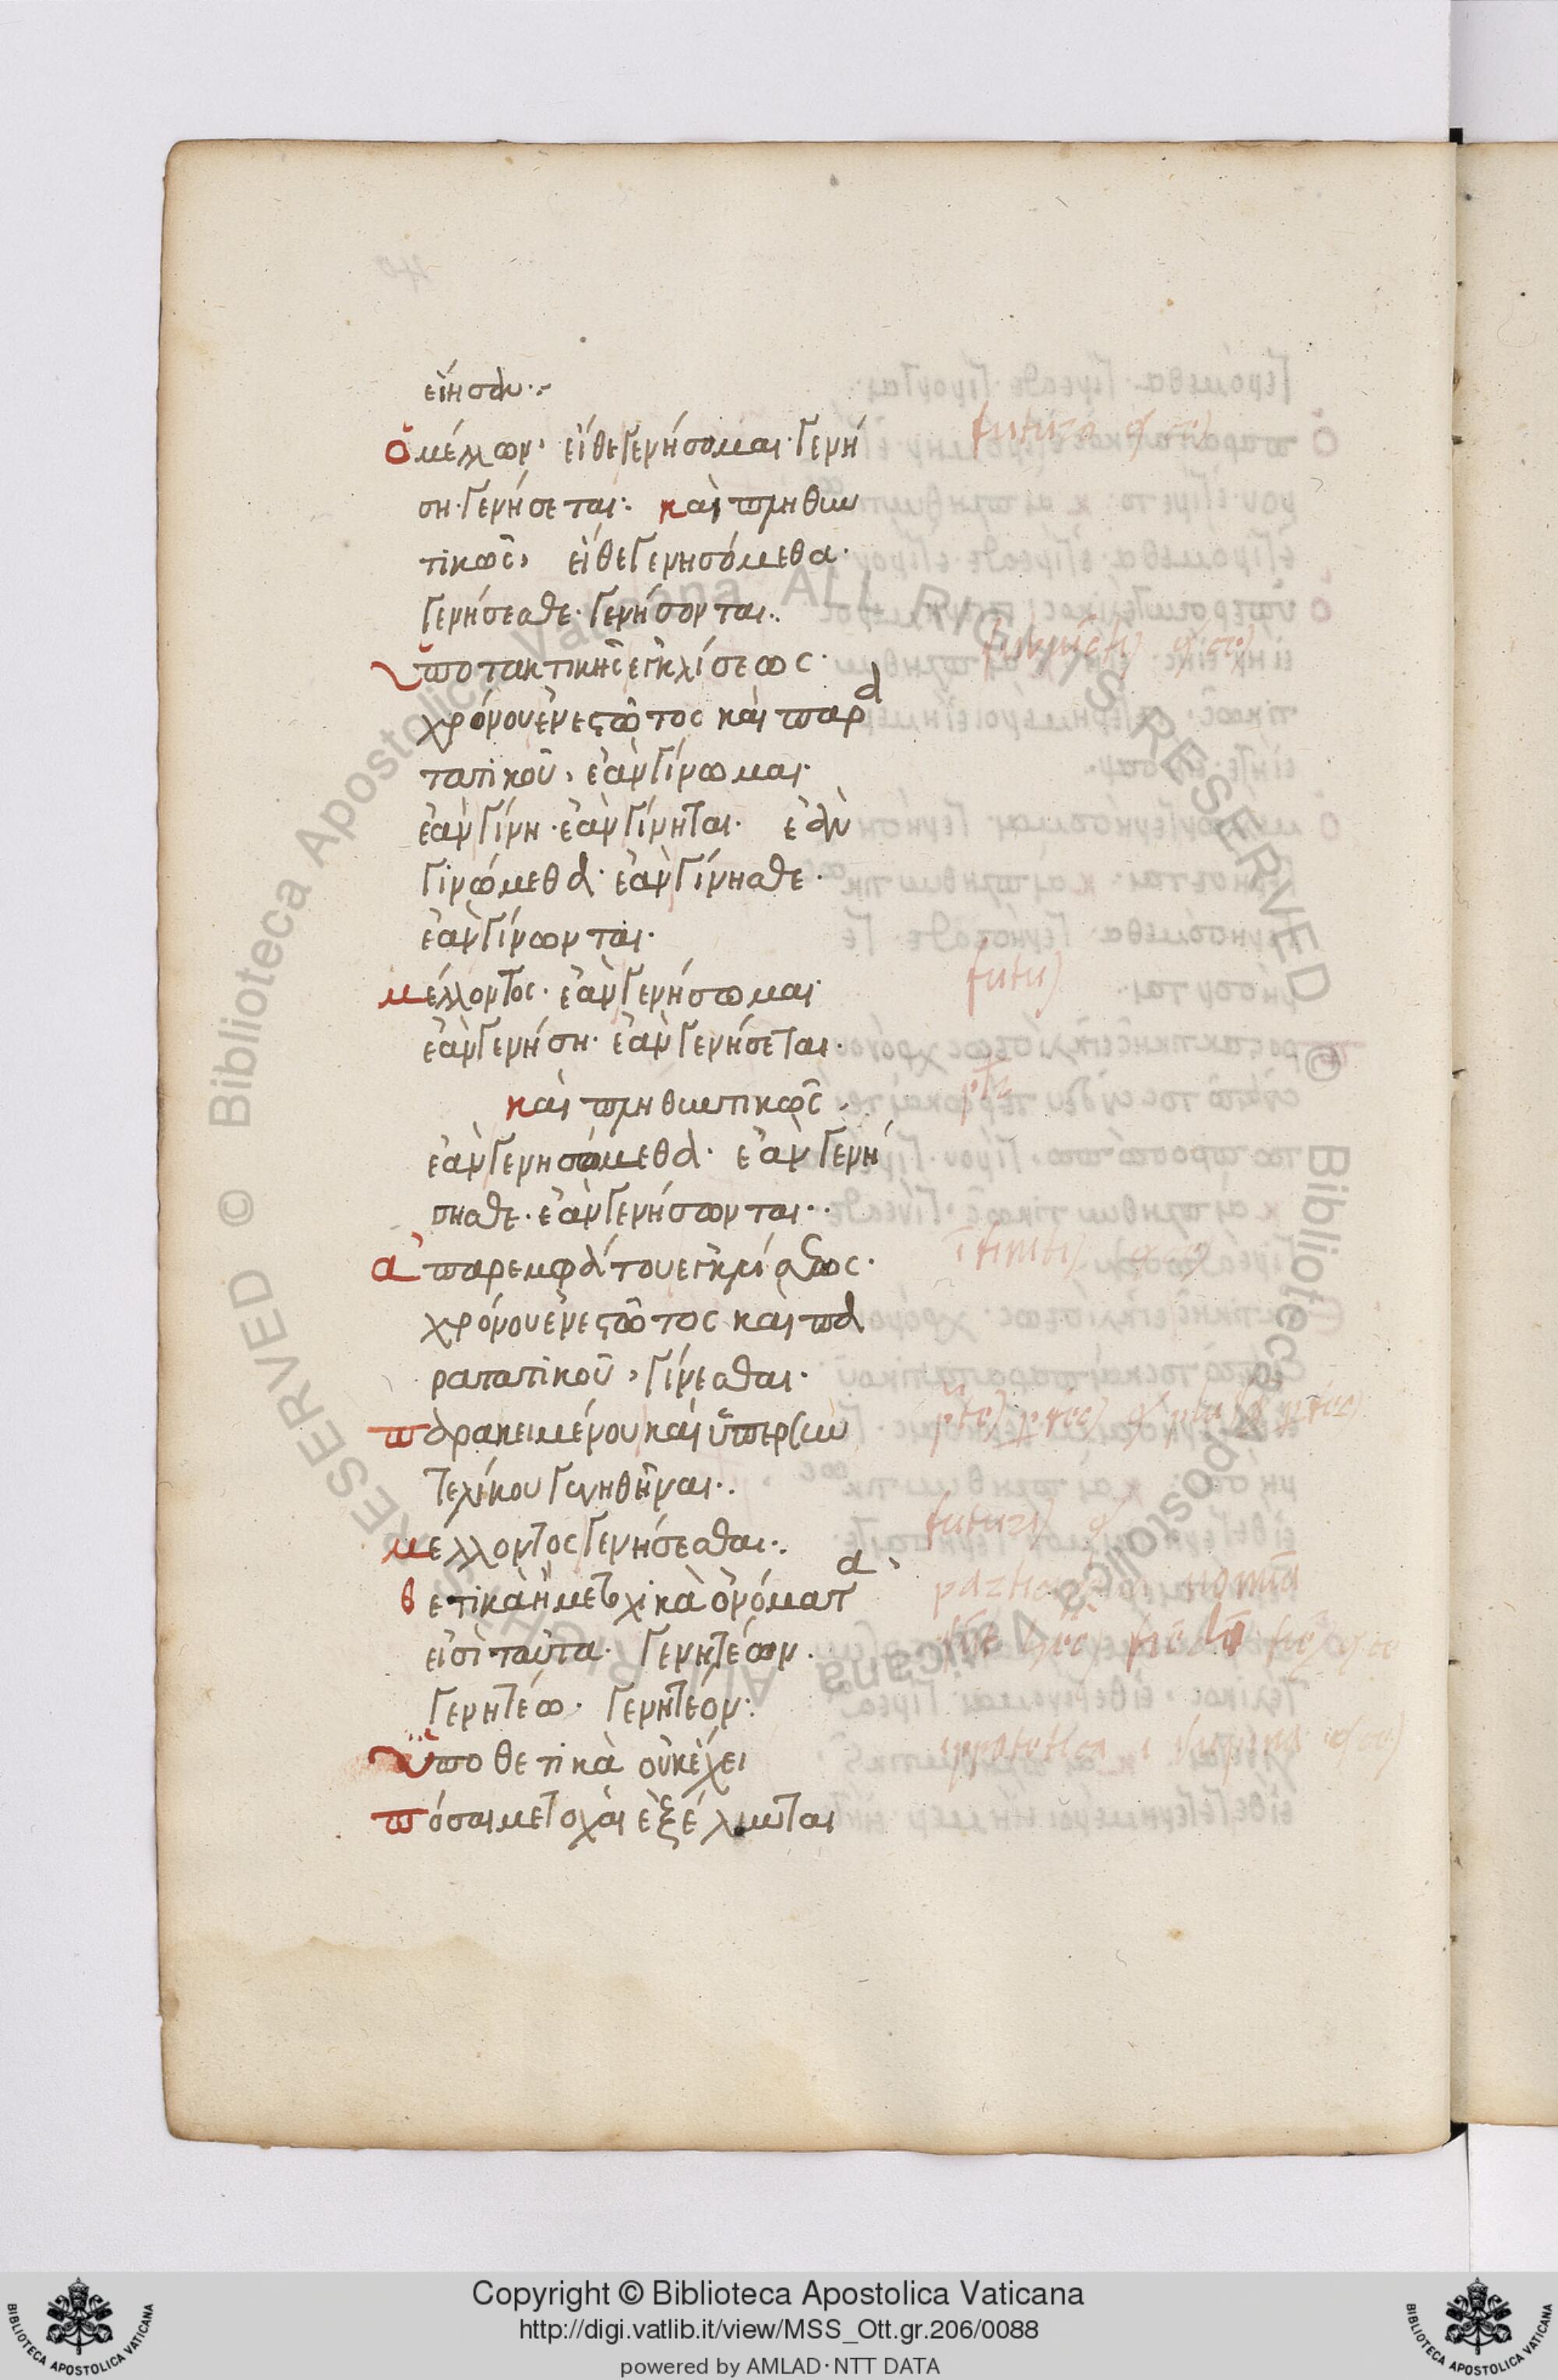 εἴησαν·
ὁ μέλλων· εἴθε γενήσομαι· γενή
ση· γενήσεται· καὶ πληθυν
τικῶς, εἴθε γενησόμεθα·
γενήσεσθε· γενήσονται·
ὑποτακτικῆς ἐγκλίσεως·
χρόνου ἐνεστῶτος καὶ παρα
τατικοῦ, ἐὰν γίνωμαι·
ἐὰν γίνη· ἐὰν γίνηται· ἐὰν
γινώμεθα· ἐὰν γίνησθε·
ἐὰν γίνωνται·
μέλλοντος· ἐὰν γενήσωμαι
ἐὰν γενήση· ἐὰν γενήσεται·
καὶ πληθυντικῶς
ἐὰν γενησώμεθα· ἐὰν γενή
σησθε· ἐὰν γενήσωνται·
ἀπαρεμφάτου ἐγκλίσεως·
χρόνου ἐνεστῶτος καὶ πα
ρατατικοῦ, γίνεσθαι·
παρακειμένου καὶ ὑπερσυν
τελίκου γενηθῆναι·
μέλλοντος γενήσεσθαι·
θετικὰ ἢ μετοχικὰ ὀνόματα
εἰσὶ ταῦτα· γενητέων·
γενητέω· γενητέον·
ὑποθετικὰ οὐκ ἔχει
πόσαι μετοχαὶ ἐξέλιπται
futuri
futu
Copyright © Biblioteca Apostolica Vaticana
http://digi.vatlib.it/view/MSS_Ott.gr.206/0088
powered by AMLAD·NTT DATA
BIBLIOTECA APOSTOLICA VATICANA
BIBLIOTECA APOSTOLICA VATICANA
© Biblioteca Apostolica Vaticana ALL RIGHTS RESERVED
© Biblioteca Apostolica Vaticana ALL RIGHTS RESERVED